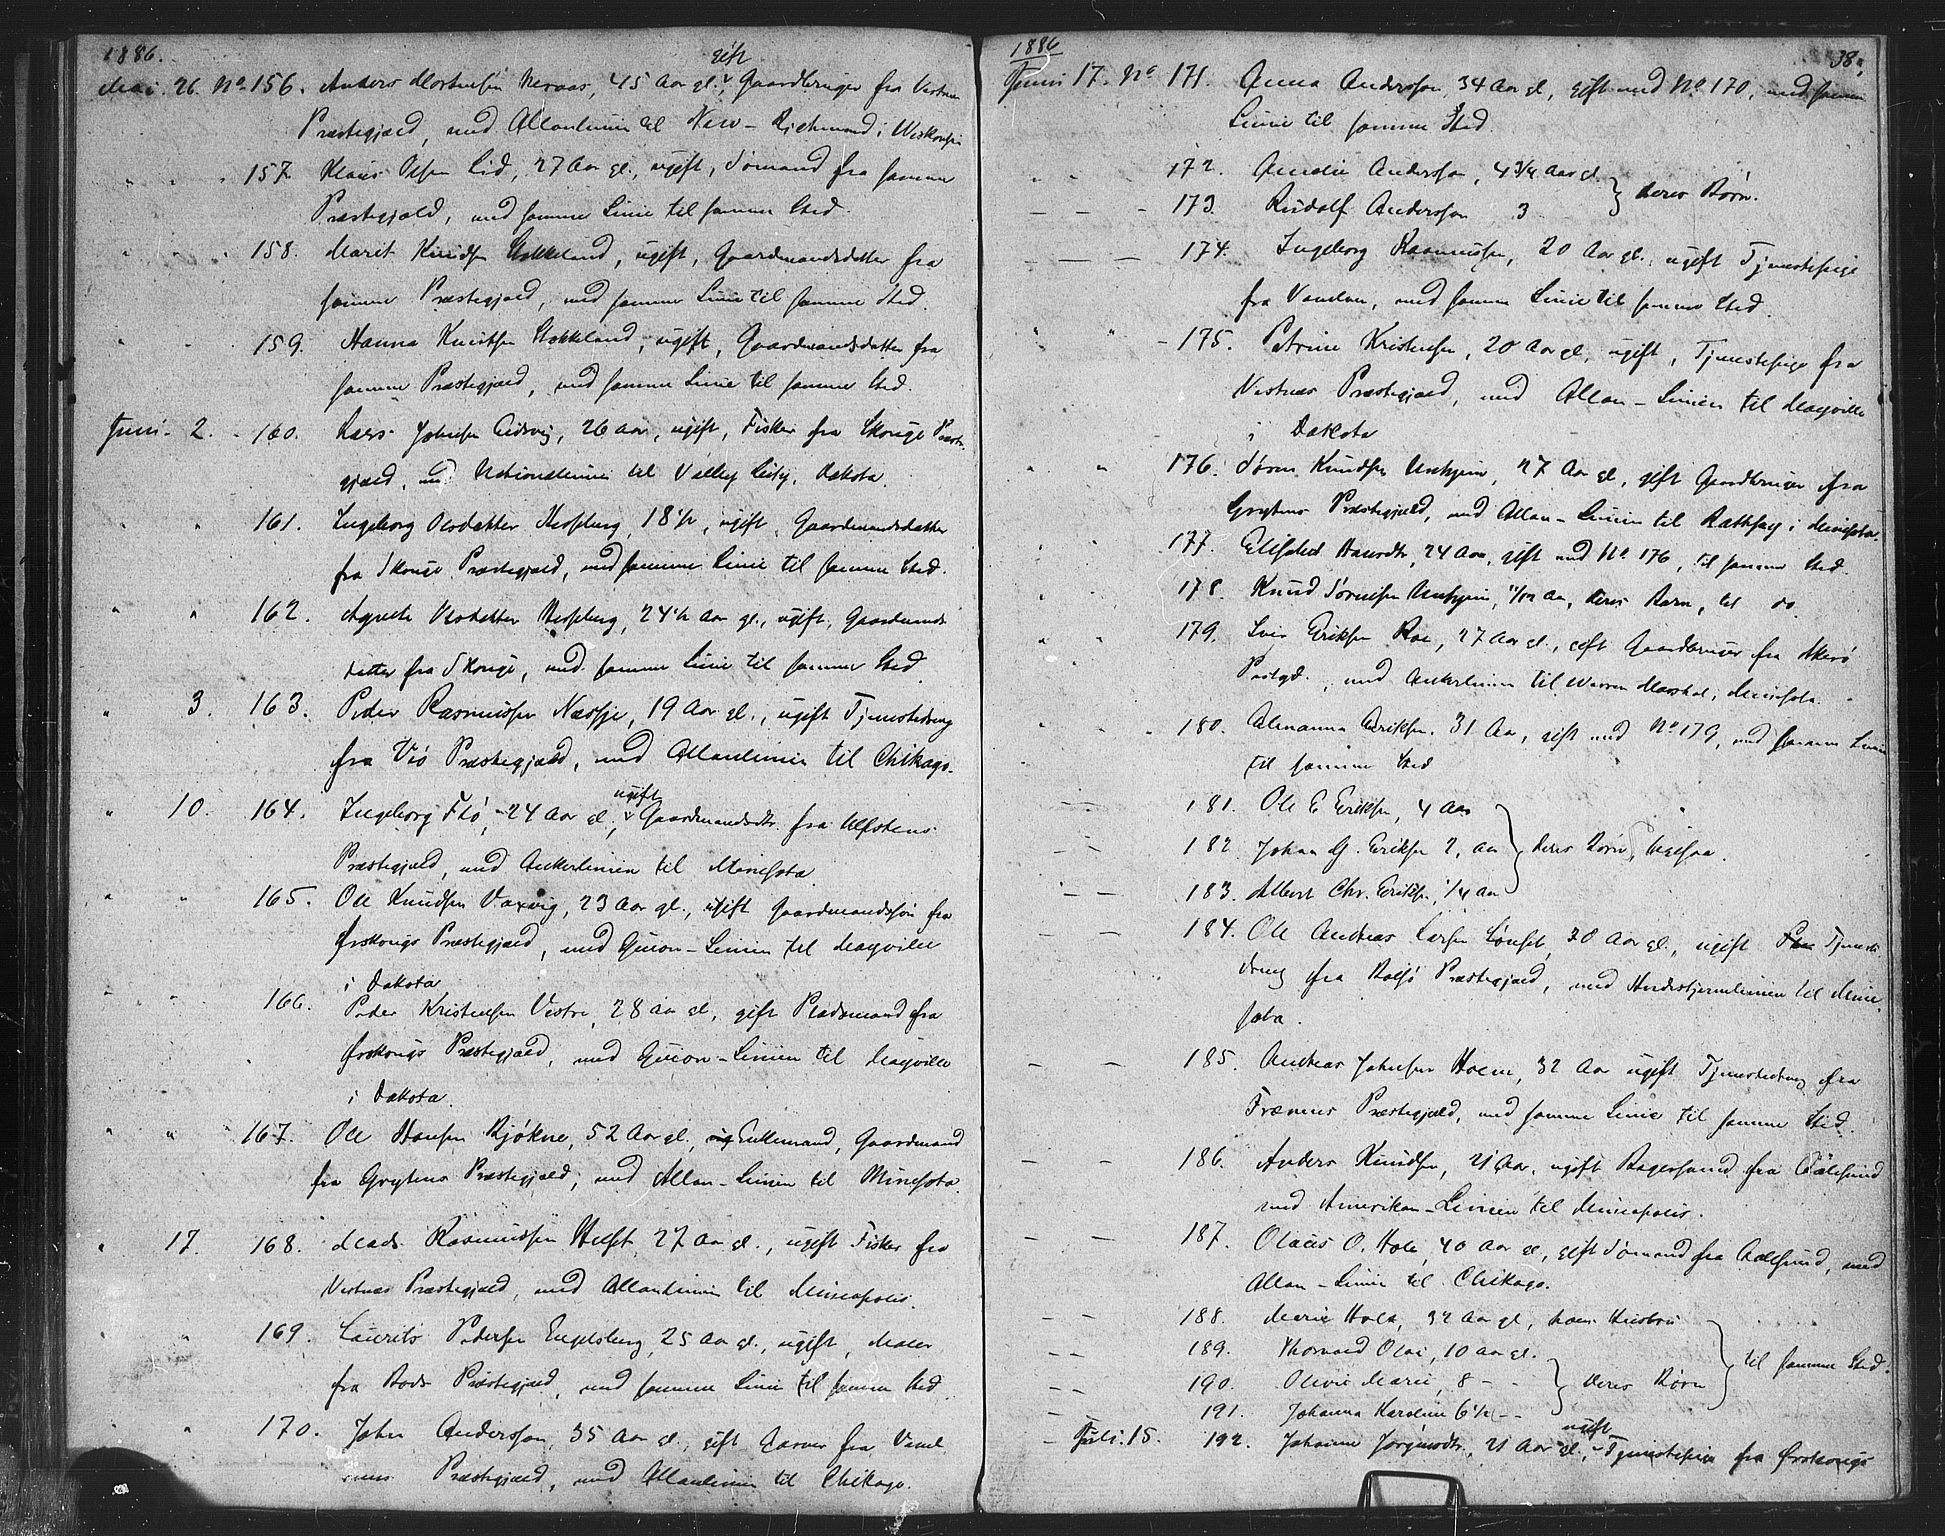 1886.
gift
Mai. 26. No. 156. Anders Mortensen Neraas, 45 Aar gl., Gaardbruger fra Vestnæs
Præstegjæld, med Allanlinien til New-Richmond i Wiskonsin
157. Klaus Olsen Lid, 27 Aar gl., ugift, Sømand fra samme
Præstegjæld, med samme Linie til samme Sted.
158. Maret Knudsen Stokkeland, ugift, Gaardmandsdatter fra
samme Præstegjæld, med samme Linie til samme Sted.
159. Hanna Knudsen Stokkeland, ugift, Gaardmandsdatter fra
samme Præstegjæld, med samme Linie til samme Sted.
Juni 2. 160. Lars Johnsen Eidsvig, 26 Aar, ugift, Fisker fra Skouge Præste-
gjæld, med Nationallinien til Valley City, Dakota.
161. Ingeborg Olsdatter 18 1/2, ugift, Gaardmandsdatter
fra Skouge Præstegjæld, med samme Linie til samme Sted.
162. Agnete Olsdatter 24 1/2 Aar gl., ugift, Gaardmands-
datter fra Skouge, med samme Linie til samme Sted.
" 3. 163. Peder Rasmussen Næsje, 19 Aar gl., ugift Tjenestedreng
fra Vø Præstegjæld, med Allanlinien til Chikago.
ugift
" 10. 164. Ingeborg Flø, 24 Aar gl., Gaardmandsdtr. fra Ulfstens
Præstegjæld, med Ankerlinien til Minesota.
165. Ole Knudsen Vaxvig, 23 Aar gl., ugift Gaardmandssøn fra
Ørskougs Præstegjæld, med Guion-Linien til Mayville
i Dakota
166. Peder Kristensen Vestre, 28 Aar gl., gift Pladsmand fra
Ørskougs Præstegjæld, med Guion-Linien til Mayville
i Dakota.
167. Ole Hansen Bjøkne, 52 Aar gl., Enkemand, Gaardmand
fra Grytens Præstegjæld, med Allan-Linien til Minesota.
" 17. 168. Mads Rasmussen Helset, 27 Aar gl., ugift Fisker fra
Vestnæs Præstegjæld, med Allanlinien til Mineapolis.
169. Laurits Pedersen Engelsberg, 25 Aar gl., ugift, Maler
fra Bods Præstegjæld, med samme Linie til samme Sted.
170. John Andersson, 35 Aar gl., gift Garver fra Vanel-
vens Præstegjæld, med Allanlinien til Chikago.
1886
38.
Juni 17. No 171. Anna Andersson, 34 Aar gl., gift med No 170, med samme
Linie til samme Sted.
172. Amalie Andersson, 4 3/4 Aar gl. } deres Børn.
173. Rudolf Andersson 3
174. Ingeborg Rasmussen, 20 Aar gl., ugift Tjenestepige
fra Vanelven, med samme Linie til samme Sted.
175. Petrine Kristensen, 20 Aar gl., ugift, Tjenestepige fra
Vestnæs Præstegjæld, med Allan-Linien til Mayville
i Dakota
176. Søren Knudsen Unhjem, 27 Aar gl., gift Gaardbruger fra
Grytens Præstegjæld, med Allan-Linien til Rothsay i Minesota.
177. Elisabet Hansdtr, 24 Aar, gift med No 176, til samme Sted.
178. Knud Sørensen Unhjem, Aar, deres Barn, til do
179. Iver Eriksen Roe, 27 Aar gl., gift Gaardbruger fra Akerø
Prstgd., med Ankerlinien til Warren Marshal, Minesota.
180. Almanna Eriksen. 31 Aar, gift med No 179, med samme Linie
til samme Sted
181. Ole E Eriksen, 4 Aar
182. Johan G. Eriksen 2, Aar } deres Børn, ligesaa.
183. Albert Chr. Eriksen, 1/4 Aar
184. Ole Andreas Larsen Lønset, 20 Aar gl., ugift Tjeneste-
dreng fra Bolsø Præstegjæld, med Hvidestjernelinien til Mine-
sota.
185. Andreas Johnsen Hoem, 32 Aar ugift Tjenestedreng fra
Frænens Præstegjæld, med samme Linie til samme Sted.
186. Anders Knudsen, 21 Aar, ugift Bagersvend fra Aalesund
med Amerikan-Linien til Mineapolis.
187. Olaus O. Hole, 40 Aar gl., gift Sømand fra Aalesund, med
Allan-Linie til Chikago.
188. Marie Hole, 32 Aar gl., hans Hustru
189. Thorvald Olai, 10 Aar gl. } til samme Sted.
190. Olivie Marie, 8 - } deres Børn
191. Johanna Karoline 6 1/2 -
ugift
Juli. 15. 192. Johanne Jørgensdtr, 21 Aar gl., Tjenestepige fra Ørskougs